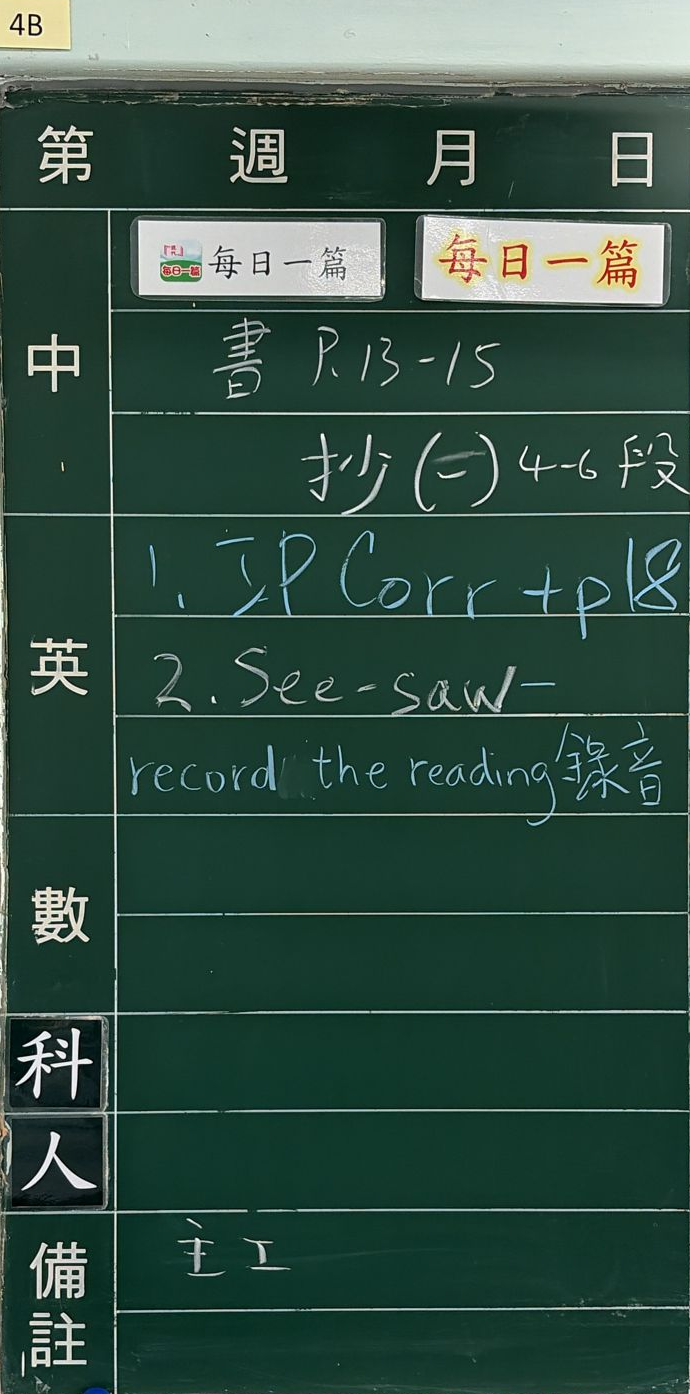 4B
第 週 月 日
每日一篇 每日一篇 每日一篇
中
書 P.13-15
抄(二) 4-6段
英
1. IP Corr + p18
2. See-saw-
record the reading 錄音
數
科
人
備註
主工